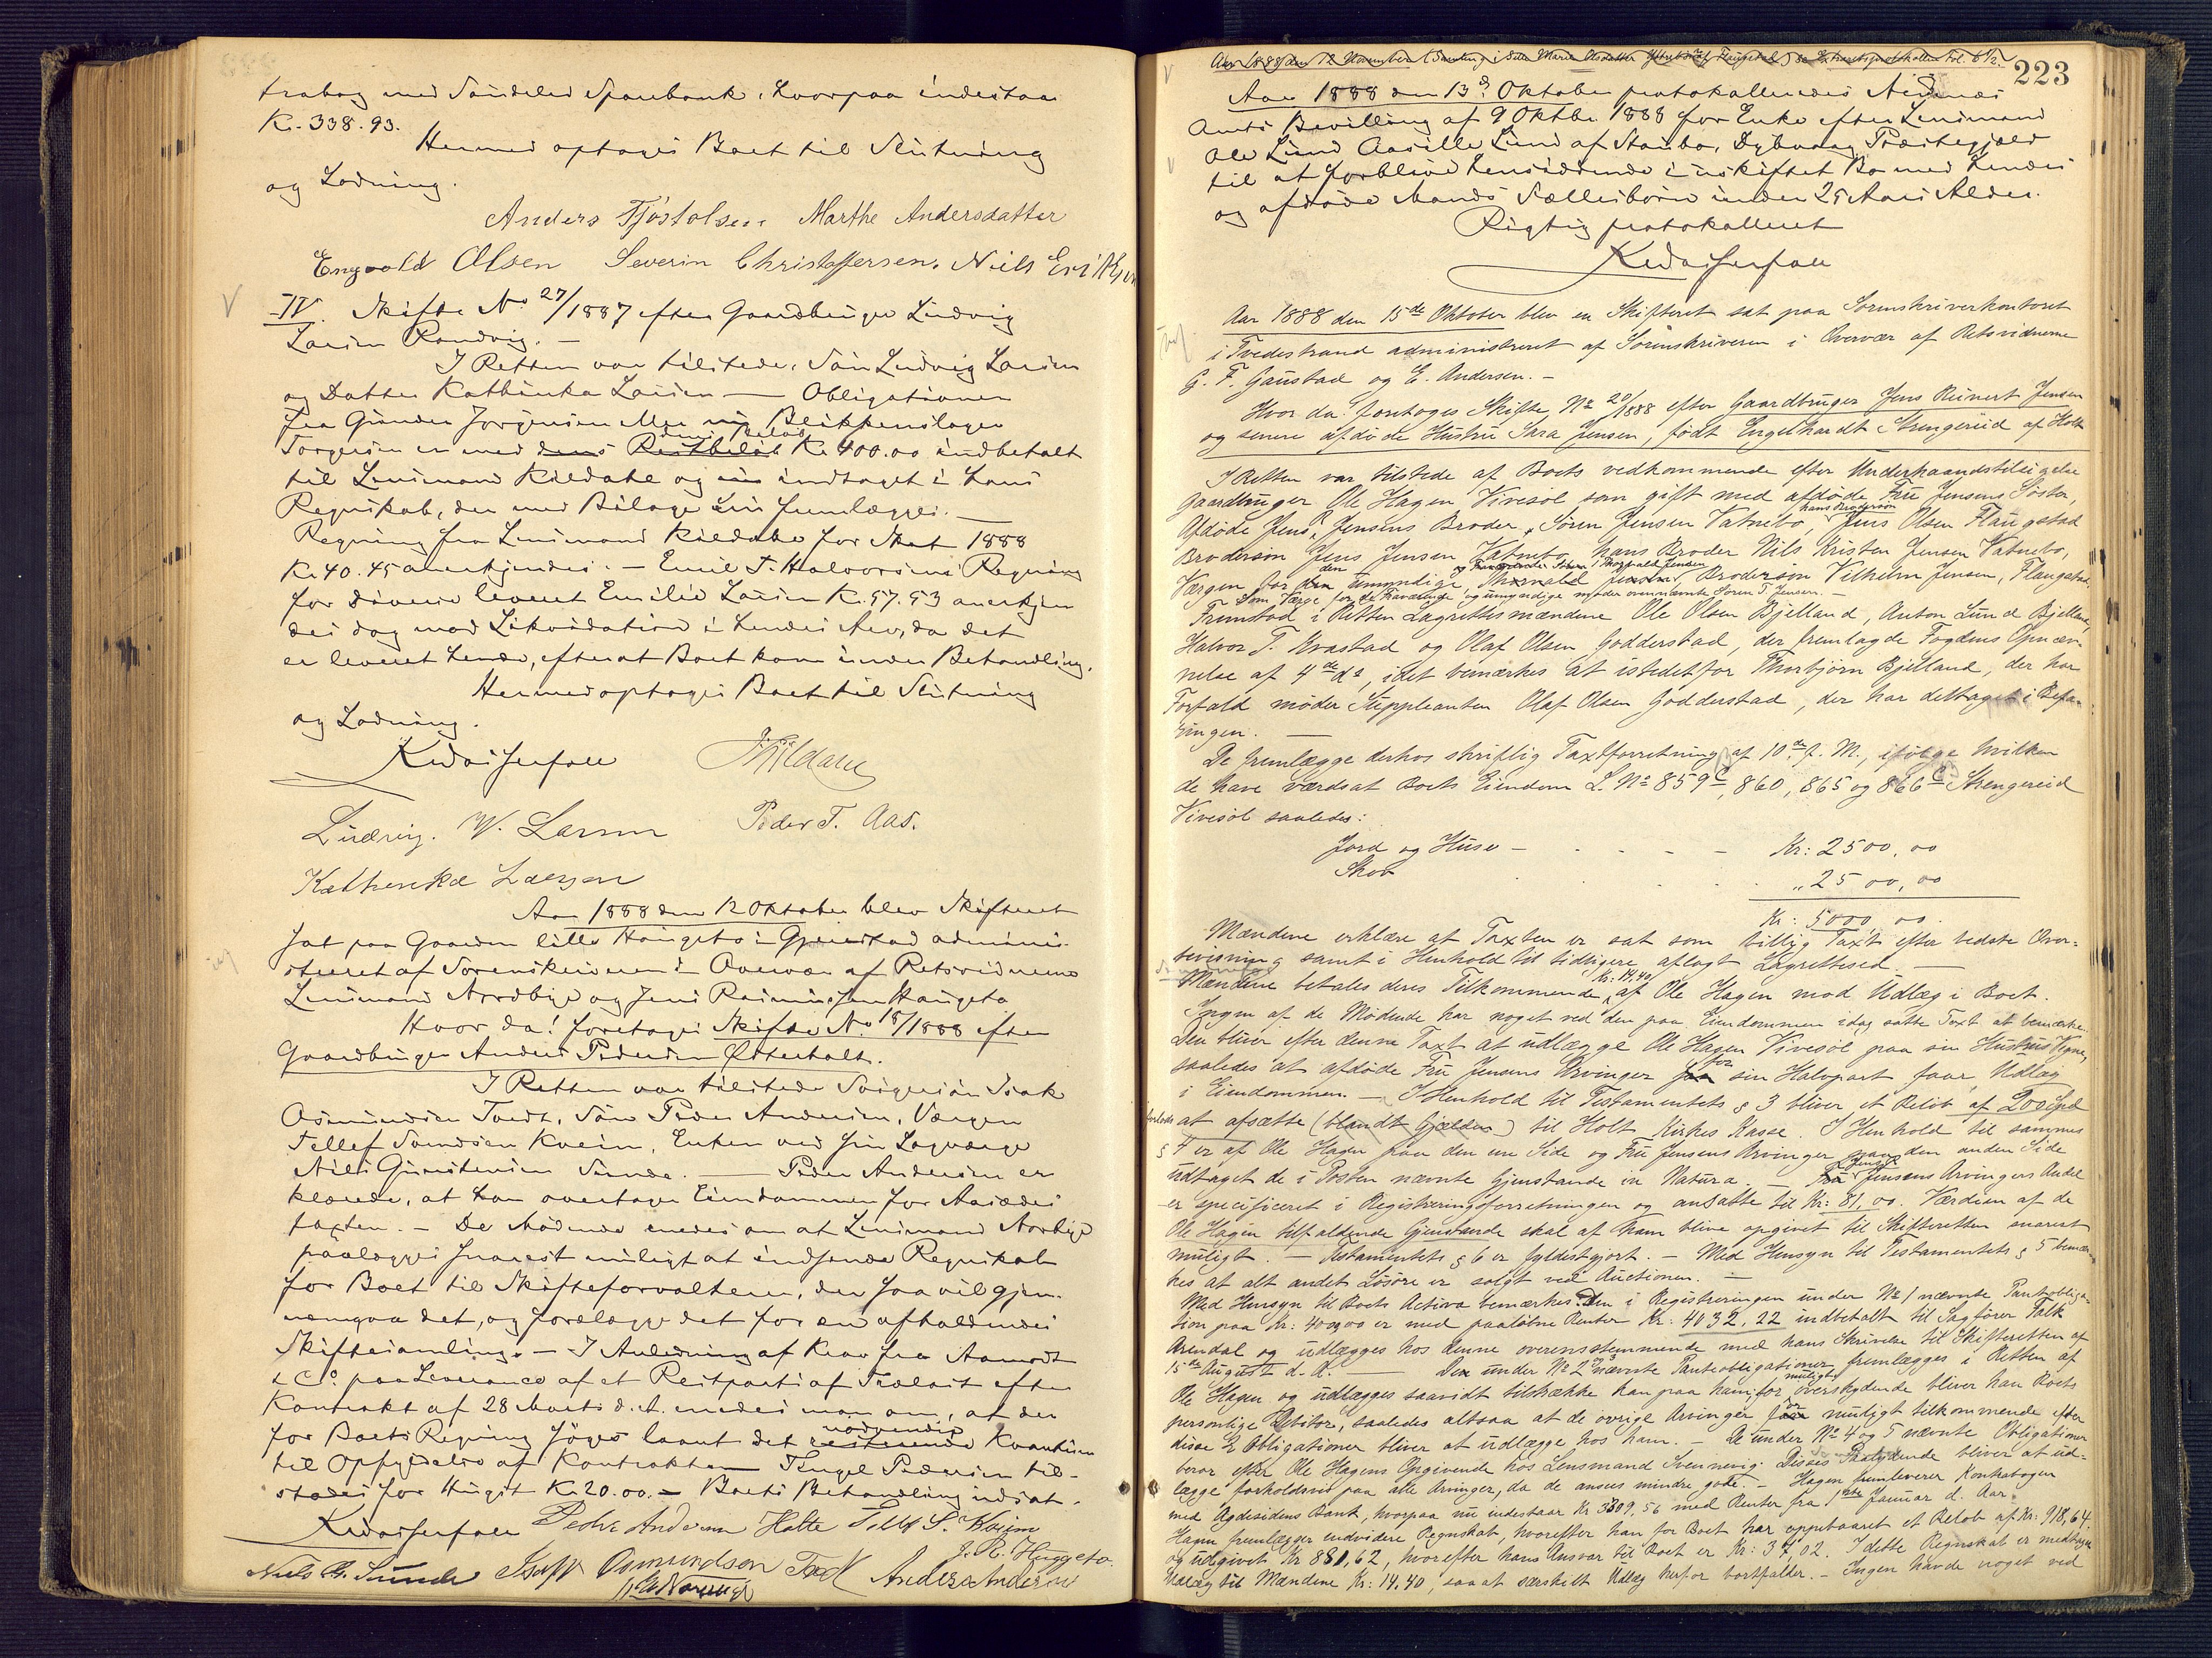 trabog med Søndeled Sparebank, hvorpaa indestaar
Kr. 338.93.
Hermed optoges Boet til Slutning
og Lodning.
Anders Tjøstolsen Marthe Andersdatter
Engvald Olsen Severin Christoffersen. Niels Eriksen
IV. Skifte No 27/1887 efter Gaardbruger Ludvig
Larsen Randvig. —
I Retten var tilstede: Søn Ludvig Larsen
og Datter Kathinka Larsen — Obligationen
fra Gunder Jørgensen Blikkenslager
Torgersen er med Restbeløb Kr. 400.00 indbetalt
til Lensmand Kildahl og indtaget i hans
Regnskab, der med Bilage fremlægges. —
Regning fra Lensmand Kildahl for Skat 1888
Kr. 40.45 anerkjendes. — Emil T. Halvorsens Regning
for Diverse leveret Emilie Larsen Kr. 57.53 anerkjen
des dog mod Likvidation i hendes Arv, da det
er leveret hende, efterat Boet kom under Behandling.
Hermed optoges Boet til Slutning
og Lodning.
J. Kildahl
Ludvig. W. Larsen Peder T. Aas.
Kathinka Larsen
Aar 1888 den 12 Oktober blev Skifteret
sat paa Gaarden lille Haugeto i Gjerrestad admini-
streret af Sorenskriveren i Overvær af Retsvidnerne
Lensmand Nordbye og Jens Rasmussen Haugeto
Hvor da! foretoges Skifte No 18/1888 efter
Gaardbruger Anders Pedersen Østerholt.
I Retten var tilstede Svigersøn Isak
Osmundsen Tvedt, Søn Peder Andersen, Værgen
Tellef Svendsen Kveim, Enken ved sin Lagværge
Nils Gunstensen Sunde. — Peder Andersen er
klærede, at han overtager Eiendommen for Aasædes
taxten. — De Mødende enedes om at Lensmand Norbye
paalægges snarest muligt at indsende Regnskab
for Boet til Skifteforvalteren, der saa vil gjen-
nemgaa det, og forelægge det for en afholdendes
Skiftesamling. — I Anledning af Krav fra Aamodt
& Co. paa Leverance af et Restparti af Trælast efter
Kontrakt af 28 Marts d. A. enedes man om, at der
for Boets Regning søges laant det nødvendige Kvantum
til Opfyldelse af Kontrakten Tengel Pedersen til-
stodes for Hugst Kr. 20.00. — Boets Behandling udsat.
Peder Andersen Holte Tellef S. Kveim
J. R. Huggeto.
Niels G. Sunde Isak Osmundson Tvedt Anders Anderson
223
Aar 1888 den 13de Oktober protokolleredes Nedenæs
Amts Bevilling af 9 Oktbr 1888 for Enke efter Lensmand
Ole Lund Aasille Lund af Staubø, Dybvaag Præstegjæld
til at forblive hensiddende i uskiftet Bo med hendes
og afdøde Mands Fællesbørn under 25 Aars Alder.
Rigtig protokolleret
Aar 1888 den 15de Oktober blev en Skifteret sat paa Sorenskriverkontoret
i Tvedestrand administreret af Sorenskriveren i Overvær af Retsvidnerne
G. F. Gaustad og E. Andersen. —
Hvor da! foretoges Skifte No 20/1888 efter Gaardbruger Jens Reinert Jensen
og senere afdøde Hustru Sara Jensen, født Engelhardt Strengereid af Holt
I Retten var tilstede af Boets vedkommende efter Underhaandstilsigelse
Gaardbruger Ole Hagen Vivesøl som gift med afdøde Fru Jensens Søster,
Afdøde Jens Jensens Broder, Søren Jensen Vatnebo hans Brodersøn Jens Olsen Flaugstad
Brodersøn Jens Jensen Vatnebo, hans Broder Nils Kristen Jensen Vatnebo,
Værgen for den umyndige Brodersøn Vilhelm Jensen, Flaugstad.
Som Værge for de fraværende og umyndige møder ovennævnte Søren T. Jensen. —
Fremstod i Retten Lagrettesmændene Ole Olsen Bjelland, Anton Lund Bjelland,
Halvor T. Kvastad og Olaf Olsen Godderstad, der fremlagde Fogdens Opnæv-
nelse af 4de ds, idet bemærkes at istedetfor Thorbjørn Bjelland, der har
Forfald møder Suppleanten Olaf Olsen Godderstad, der har deltaget i Befa-
ringen. —
De fremlægge derhos skriftlig Taxtforretning af 10de f. M., ifølge hvilken
de have værdsat Boets Eiendom L. No 859c, 860, 865 og 866c Strengereid
Vivesøl saaledes:
Jord og Huse — Kr: 2500,00
Skov „ 2500,00
Kr: 5000,00.
Mændene erklære at Taxten er sat som billig Taxt efter bedste Over-
bevisning samt i Henhold til tidligere aflagt Lagrettesed —
Mændene betales deres Tilkommende Kr: 14.40 af Ole Hagen mod Udlæg i Boet.
Ingen af de Mødende har noget ved den paa Eiendommen idag satte Taxt at bemærke.
Den bliver efter denne Taxt at udlægge Ole Hagen Vivesøl paa sin Hustrus Vegne,
saaledes at afdøde Fru Jensens Arvinger for sin Halvpart faar Udlæg
i Eiendommen. — I Henhold til Testamentets § 3 bliver et Beløb af 200 Spd
at afsætte (blandt Gjælden) til Holt Kirkes Kasse. I Henhold til sammes
§ 4 er af Ole Hagen paa den ene Side og Fru Jensens Arvinger paa den anden Side
udtaget de i Posten nævnte Gjenstande in Natura. — Jens Jensens Arvingers Andel
er specificeret i Registreringsforretningen og ansatte til Kr: 81,00. Værdien af de
Ole Hagen tilfaldende Gjenstande skal af ham blive opgivet til Skifteretten snarest
muligt. — Testamentets § 6 er fyldestgjort. — Med Hensyn til Testamentets § 5 bemær-
kes at alt andet Løsøre er solgt ved Auctionen. —
Med Hensyn til Boets Activa bemærkes: Den i Registreringen under No 1 nævnte Pantobliga-
tion paa Kr: 4000,00 er med paaløbne Renter Kr: 4032,22 indbetalt til Sagfører Falk
Arendal og udlægges hos denne overensstemmende med hans Skrivelse til Skifteretten af
15de August d. A. — Den under No 2 nævnte Pantobligationer fremlægges i Retten af
Ole Hagen og udlægges saavidt tilstrække kan paa ham, for muligt overskydende bliver han Boets
personlige Debitor, saaledes altsaa at de øvrige Arvinger for muligt tilkommende efter
disse 2 Obligationer bliver at udlægge hos ham. — De under No 4 og 5 nævnte Obligationer
beror efter Ole Hagens Opgivende hos Lensmand Svennevig. Disses Paalydende bliver at ud-
lægge forholdsvis paa alle Arvinger, da de ansees mindre gode. — Hagen fremleverer Kontrabogen
med Agdesidens Bank, hvorpaa nu indestaar Kr 3309,56 med Renter fra 1ste Januar d. Aar.
Hagen fremlægger endvidere Regnskab, hvorefter han for Boet har oppebaaret et Beløb af Kr: 918,64.
og udgivet Kr 880,62, hvorefter hans Ansvar til Boet er Kr: 38,02. I dette Regnskab er medtaget
Udlæg til Mændene Kr: 14.40, saa at særskilt Udlæg herfor bortfalder. — Ingen havde noget ved